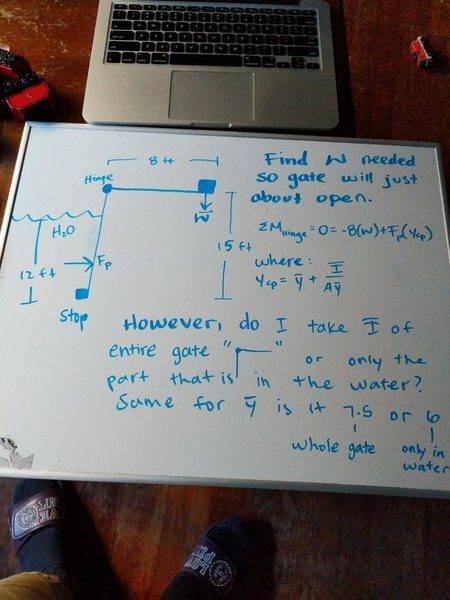 8 ft
Hinge
W
H2O
12 ft
Fp
Stop
15 ft
Find W needed
so gate will just
about open.
ΣMHinge = 0 = -8(W) + Fp(Ycp)
where:
Ycp = ȳ + Ī/Aȳ
However, do I take Ī of
entire gate " " or only the
part that is in the water?
Same for ȳ is it 7.5 or 6
whole gate
only in
water